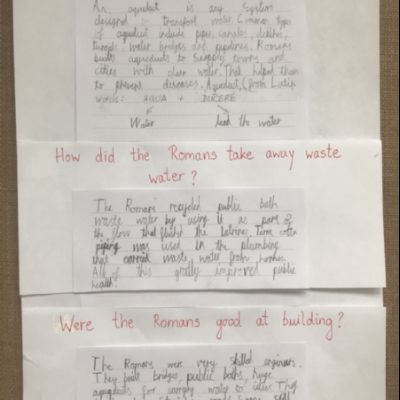 An aqueduct is any system
designed to transport water. Common types
of aqueduct include pipes, canals, ditches,
tunnels, water bridges and pipelines. Romans
built aqueducts to supply towns and
cities with clean water. That helped them
to prevent diseases. Aqueduct, (from Latin
words: AQUA + DUCERE
Water lead the water
How did the Romans take away waste
water?
The Romans recycled public bath
waste water by using it as part of
the flow that flushed the latrines. Terra cotta
piping was used in the plumbing
that carried waste water from homes.
All of this greatly improved public
health.
Were the Romans good at building?
The Romans were very skilled engineers.
They built bridges, public baths, huge
aqueducts for carrying water to cities. They